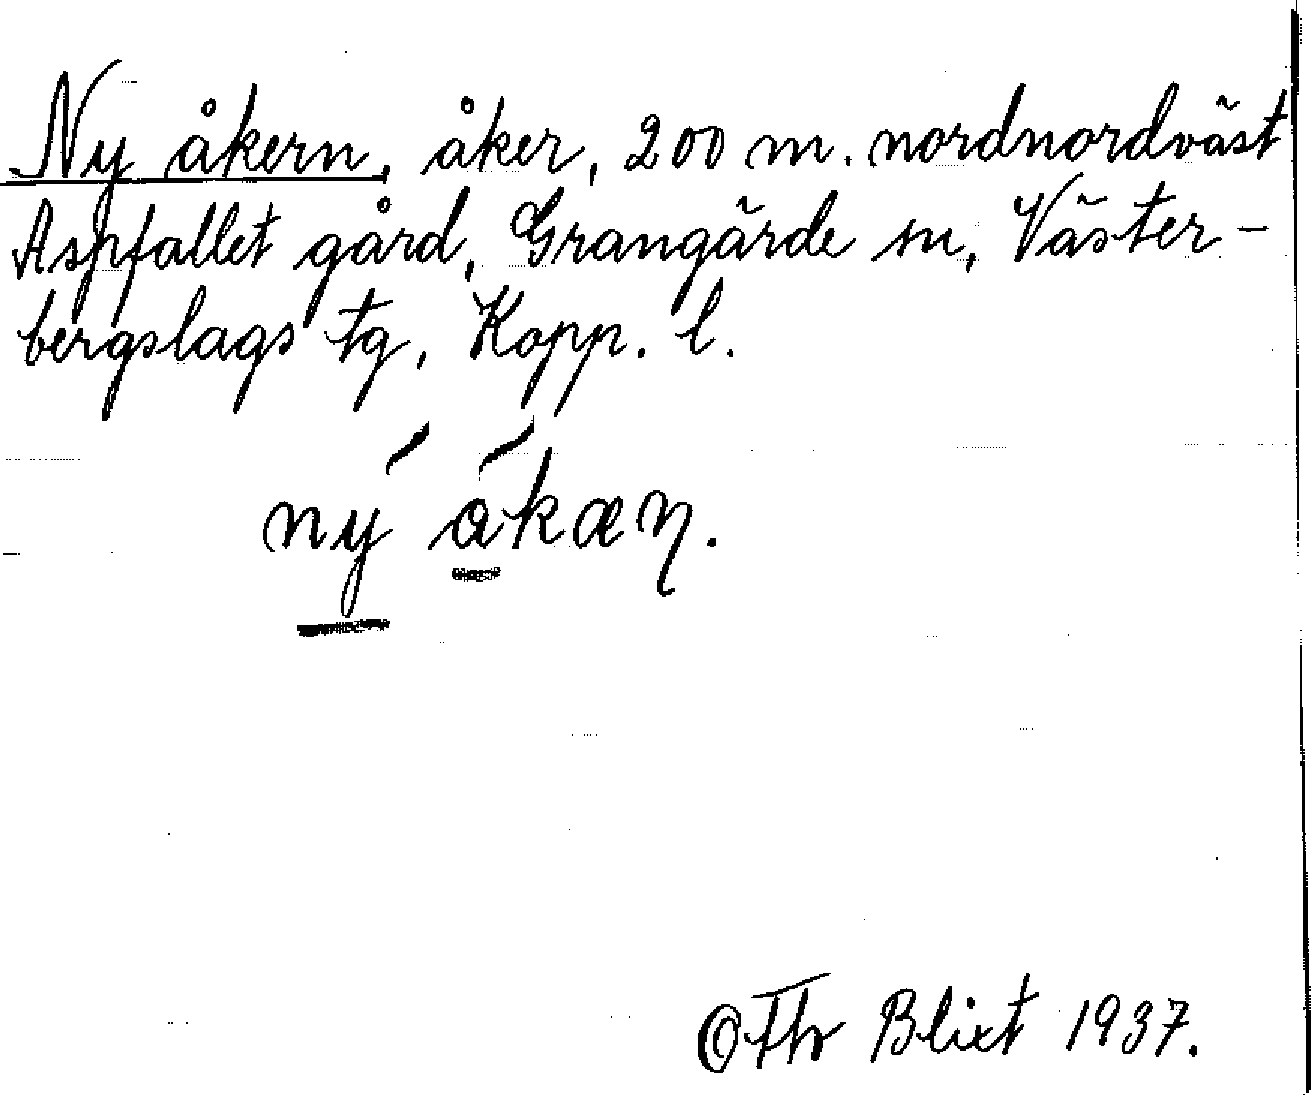 Ny åkern, åker, 200 m. nordnordväst
Aspfallet gård, Grangärde sn, Väster-
bergslags tg, Kopp. l.
ný ákæɳ.
© Thv Blixt 1937.